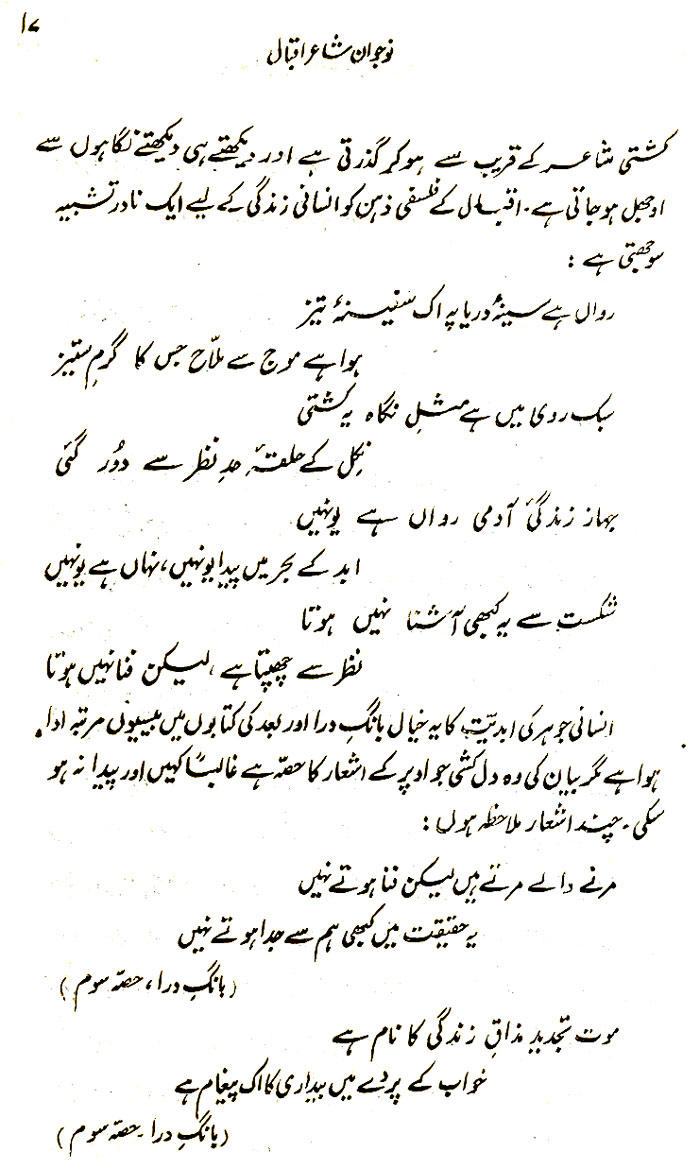 ۱۷
نوجوان شاعر اقبال
کشتی شاعر کے قریب سے ہو کر گذرتی ہے اور دیکھتے ہی دیکھتے نگاہوں سے
اوجھل ہو جاتی ہے۔ اقبال کے فلسفی ذہن کو انسانی زندگی کے لیے ایک نادر تشبیہ
سوجھتی ہے :
رواں ہے سینۂ دریا پہ اک سفینۂ تیز
ہوا ہے موج سے ملّاح جس کا گرمِ ستیز
سبک روی میں ہے مثلِ نگاہ یہ کشتی
نکل کے حلقۂ حدِ نظر سے دُور گئی
جہاز زندگیٔ آدمی رواں ہے یونہیں
ابد کے بحر میں پیدا یونہیں، نہاں ہے یونہیں
شکست سے یہ کبھی آشنا نہیں ہوتا
نظر سے چھپتا ہے، لیکن فنا نہیں ہوتا
انسانی جوہر کی ابدیّت کا یہ خیال بانگِ درا اور بعد کی کتابوں میں بیسیوں مرتبہ ادا
ہوا ہے مگر بیان کی وہ دل کشی جو اوپر کے اشعار کا حصّہ ہے غالباً کہیں اور پیدا نہ ہو
سکی۔ چند اشعار ملاحظہ ہوں :
مرنے والے مرتے ہیں لیکن فنا ہوتے نہیں
یہ حقیقت میں کبھی ہم سے جدا ہوتے نہیں
(بانگِ درا، حصّہ سوم)
موت تجدیدِ مذاقِ زندگی کا نام ہے
خواب کے پردے میں بیداری کا اک پیغام ہے
(بانگِ درا۔ حصّہ سوم)